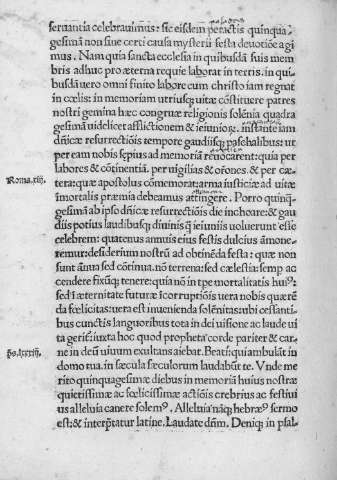 seruantia celebrauimus: sic eisdem peractis quinqua
gesimā non sine certi causa mysterii festa deuotiōe agi
mus. Nam quia sancta ecclesia in quibusdā suis mem
bris adhuc pro æterna requie laborat in terris. in qui
busdā uero omni finito labore cum christo iam regnat
in cœlis: in memoriam utriusq; uitæ cōstituere patres
nostri gemina hæc congruæ religionis solēnia quadra
gesimā uidelicet afflictionem & ieiuniorꝝ. instante iam
dn̄icæ resurrectiōis tempore gaudiisq; paschalibus: ut
per eam nobis sepius ad memoriā reuocarent: quia per
labores & cōtinentiā. per uigilias & or̄ones. & per cæ-
tera: quæ apostolus cōmemorat: arma iusticiæ ad uitæ
Roma.xiii.
imortalis præmia debeamus attingere. Porro quinq̄-
gesimā ab ipso dn̄icæ resurrectiōis die inchoare: & gau
diis potius laudibusq; diuinis q̄ ieiuniis uoluerunt esse
celebrem: quatenus annuis eius festis dulcius āmone-
remur: desiderium nostrū ad obtinēda festa: quæ non
sunt ānua sed cōtinua. nō terrena: sed cælestia: semp ac
cendere fixūq; tenere: quia nō in tpe mortalitatis huiꝰ:
sed ī æternitate futuræ īcorruptiōis uera nobis quærē
da fœlicitas: uera est inuenienda solēnitas: ubi cessanti-
bus cunctis languoribus tota in dei uisione ac laude ui
ta geriť: iuxta hoc quod propheta corde pariter & car-
ne in deū uiuum exultans aiebat. Beati: qui ambulāt in
ps.lxxxiii.
domo tua. in sæcula sæculorum laudabūt te. Vnde me
rito quinquagesimæ diebus in memoriā huius nostræ
quietissimæ ac fœlicissimæ actiōis crebrius ac festiui
us alleluia canere solemꝰ. Alleluia nāq; hebræꝰ sermo
est: & interp̄tatur latine. Laudate dn̄m. Deniq; in psal-